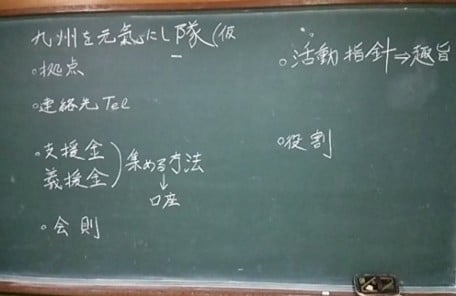 九州を元氣にし隊(仮
。拠点
。連絡先Tel
。支援金
義援金
集める方法
↓
口座
。会則
。活動指針⇒趣旨
。役割